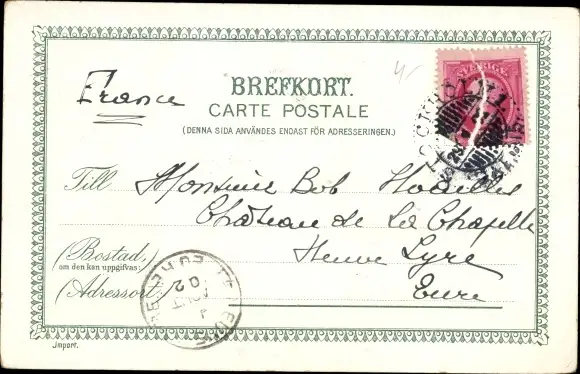 BREFKORT.
CARTE POSTALE
(DENNA SIDA ANVÄNDES ENDAST FÖR ADRESSERINGEN.)
France
SVERIGE
Till Monsieur Bob Noailles
Château de La Chapelle
Neuve Lyre
Eure
(Bostad,
om den kan uppgifvas:
(Adressort)
02
Import.